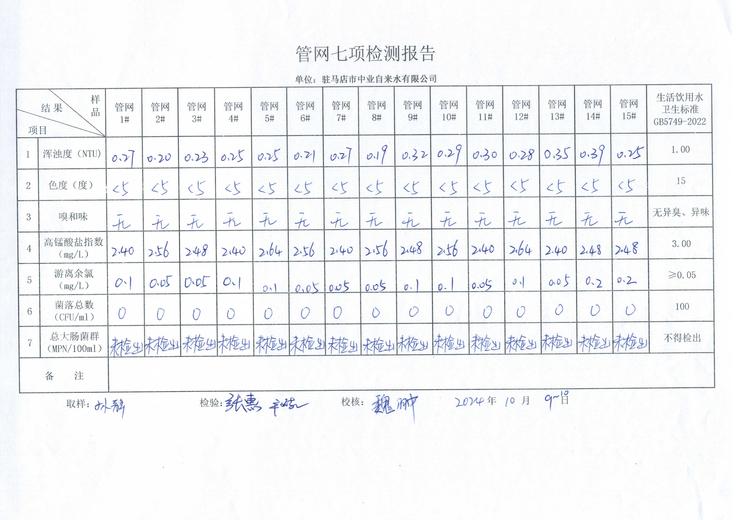 管网七项检测报告
单位：驻马店市中业自来水有限公司
结果 样品 项目 管网1# 管网2# 管网3# 管网4# 管网5# 管网6# 管网7# 管网8# 管网9# 管网10# 管网11# 管网12# 管网13# 管网14# 管网15# 生活饮用水卫生标准GB5749-2022
1 浑浊度（NTU) 0.27 0.20 0.23 0.25 0.25 0.21 0.27 0.19 0.32 0.29 0.30 0.28 0.35 0.39 0.25 1.00
2 色度（度） <5 <5 <5 <5 <5 <5 <5 <5 <5 <5 <5 <5 <5 <5 <5 15
3 嗅和味 无 无 无 无 无 无 无 无 无 无 无 无 无 无 无 无异臭、异味
4 高锰酸盐指数（mg/L） 2.40 2.56 2.48 2.40 2.64 2.56 2.40 2.56 2.48 2.56 2.40 2.64 2.40 2.48 2.48 3.00
5 游离余氯（mg/L） 0.1 0.05 0.05 0.1 0.1 0.05 0.05 0.05 0.1 0.1 0.05 0.1 0.05 0.2 0.2 ≥0.05
6 菌落总数（CFU/ml） 0 0 0 0 0 0 0 0 0 0 0 0 0 0 0 100
7 总大肠菌群（MPN/100ml） 未检出 未检出 未检出 未检出 未检出 未检出 未检出 未检出 未检出 未检出 未检出 未检出 未检出 未检出 未检出 不得检出
备 注
取样： 检验：张惠 校核：魏翀 2024年10月9~10日